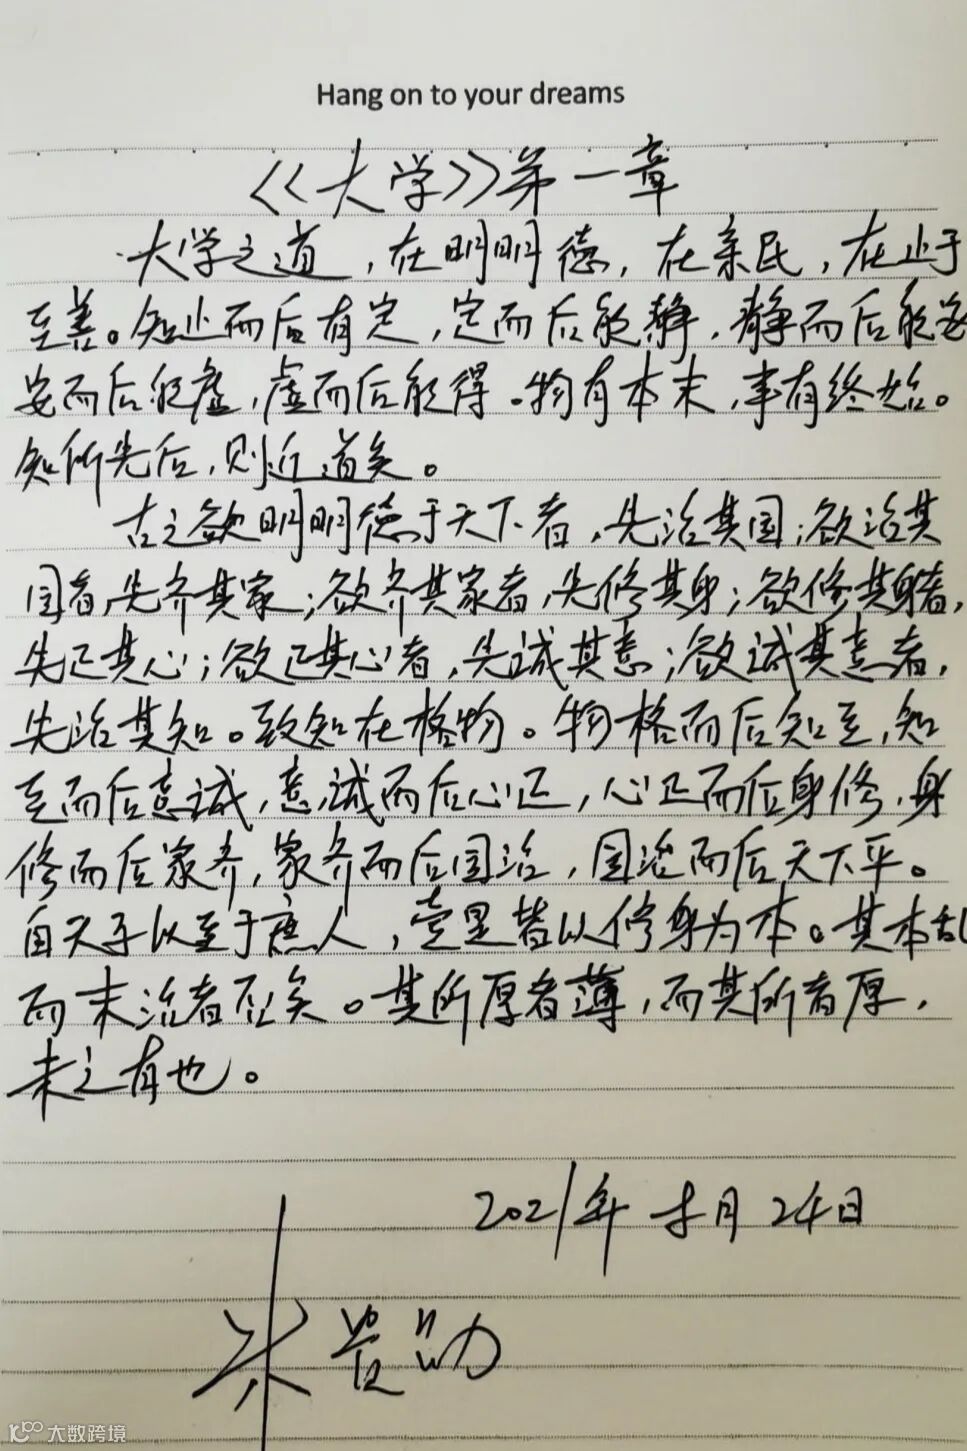 Hang on to your dreams
《大学》第一章
大学之道，在明明德，在亲民，在止于
至善。知止而后有定，定而后能静，静而后能安
安而后能虑，虑而后能得。物有本末，事有终始。
知所先后，则近道矣。
古之欲明明德于天下者，先治其国；欲治其
国者，先齐其家；欲齐其家者，先修其身；欲修其身者，
先正其心；欲正其心者，先诚其意；欲诚其意者，
先治其知。致知在格物。物格而后知至，知
至而后意诚，意诚而后心正，心正而后身修，身
修而后家齐，家齐而后国治，国治而后天下平。
自天子以至于庶人，壹是皆以修身为本。其本乱
而末治者否矣。其所厚者薄，而其所者厚，
未之有也。
2021年 月24日
贵勋
大数跨境